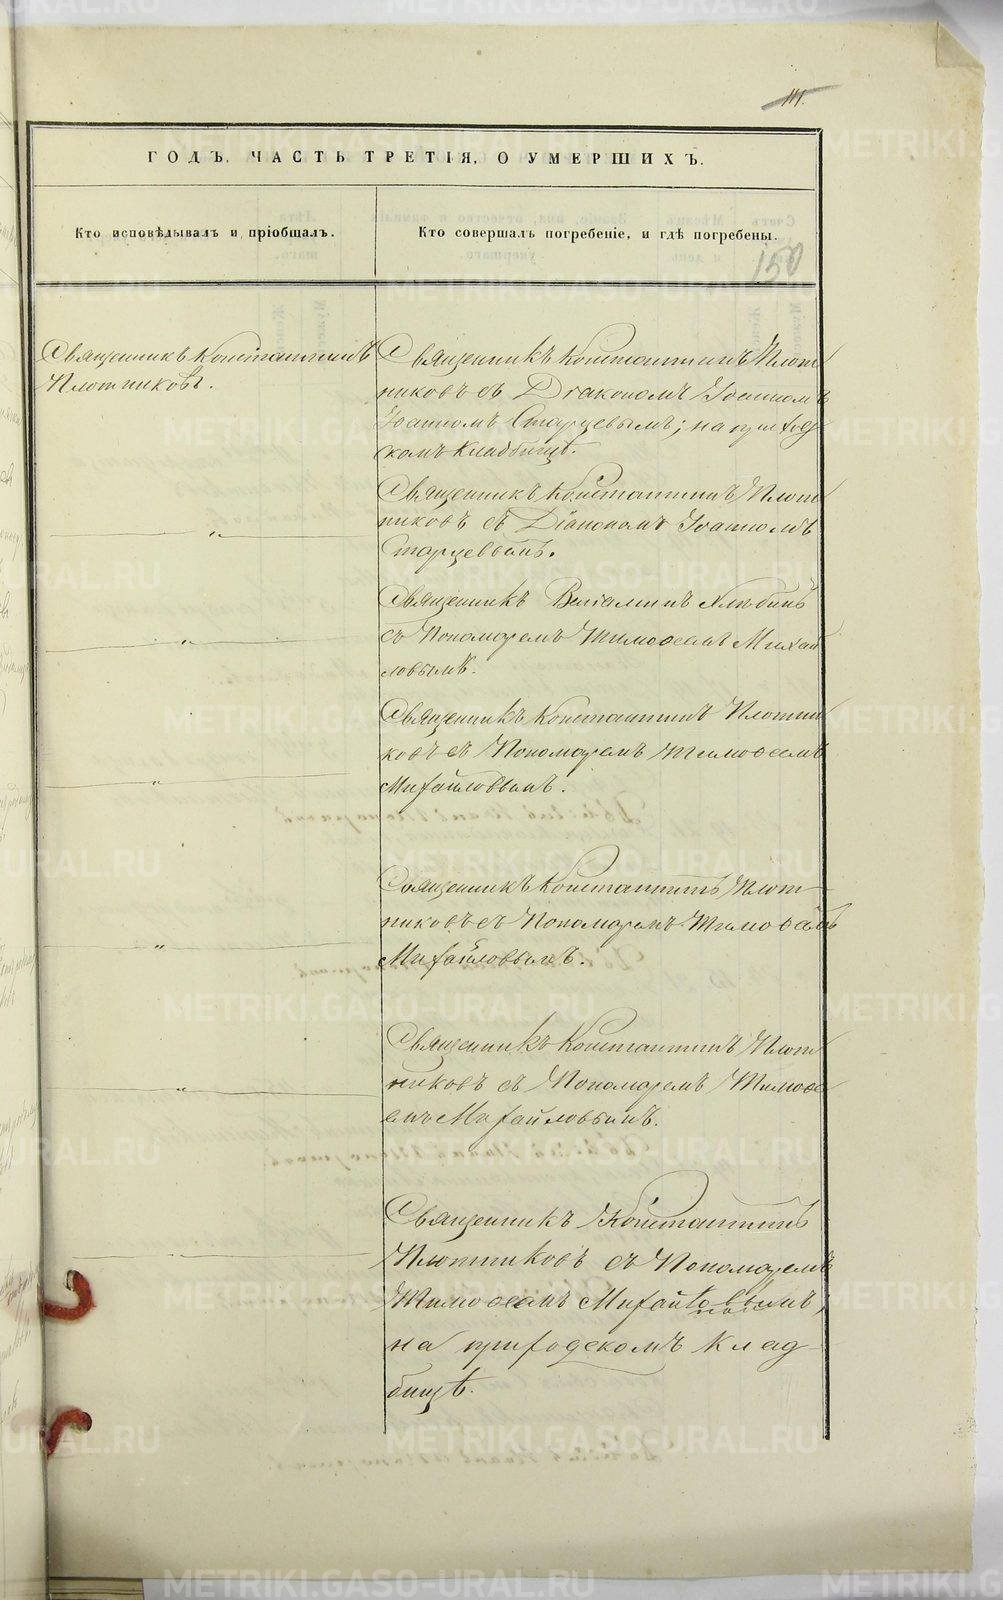 111.
ГОДЪ, ЧАСТЬ ТРЕТІЯ, О УМЕРШИХЪ.
Кто исповѣдывалъ и пріобщалъ.
Кто совершалъ погребеніе, и гдѣ погребены.
150
Священникъ Константинъ
Плотниковъ.
Священникъ Константинъ Плот
никовъ съ Діакономъ Іоанномъ
Іоанномъ Старцевымъ; на приход
скомъ кладбищѣ.
Священникъ Константинъ Плот
никовъ съ Діакономъ Іоанномъ
Старцевымъ.
"
Священникъ Веніаминъ Хлѣбинъ
съ Пономаремъ Тимоѳеемъ Михай
ловымъ.
"
Священникъ Константинъ Плотни
ковъ съ Пономаремъ Тимоѳеемъ
Михайловымъ.
"
Священникъ Константинъ Плот-
никовъ съ Пономаремъ Тимоѳеемъ
Михайловымъ.
"
Священникъ Константинъ Плот
никовъ съ Пономаремъ Тимоѳе
емъ Михайловымъ.
"
Священникъ Константинъ
Плотниковъ съ Пономаремъ
Тимоѳеемъ Михайловымъ,
на приходскомъ клад-
бищѣ.
METRIKI.GASO-URAL.RU